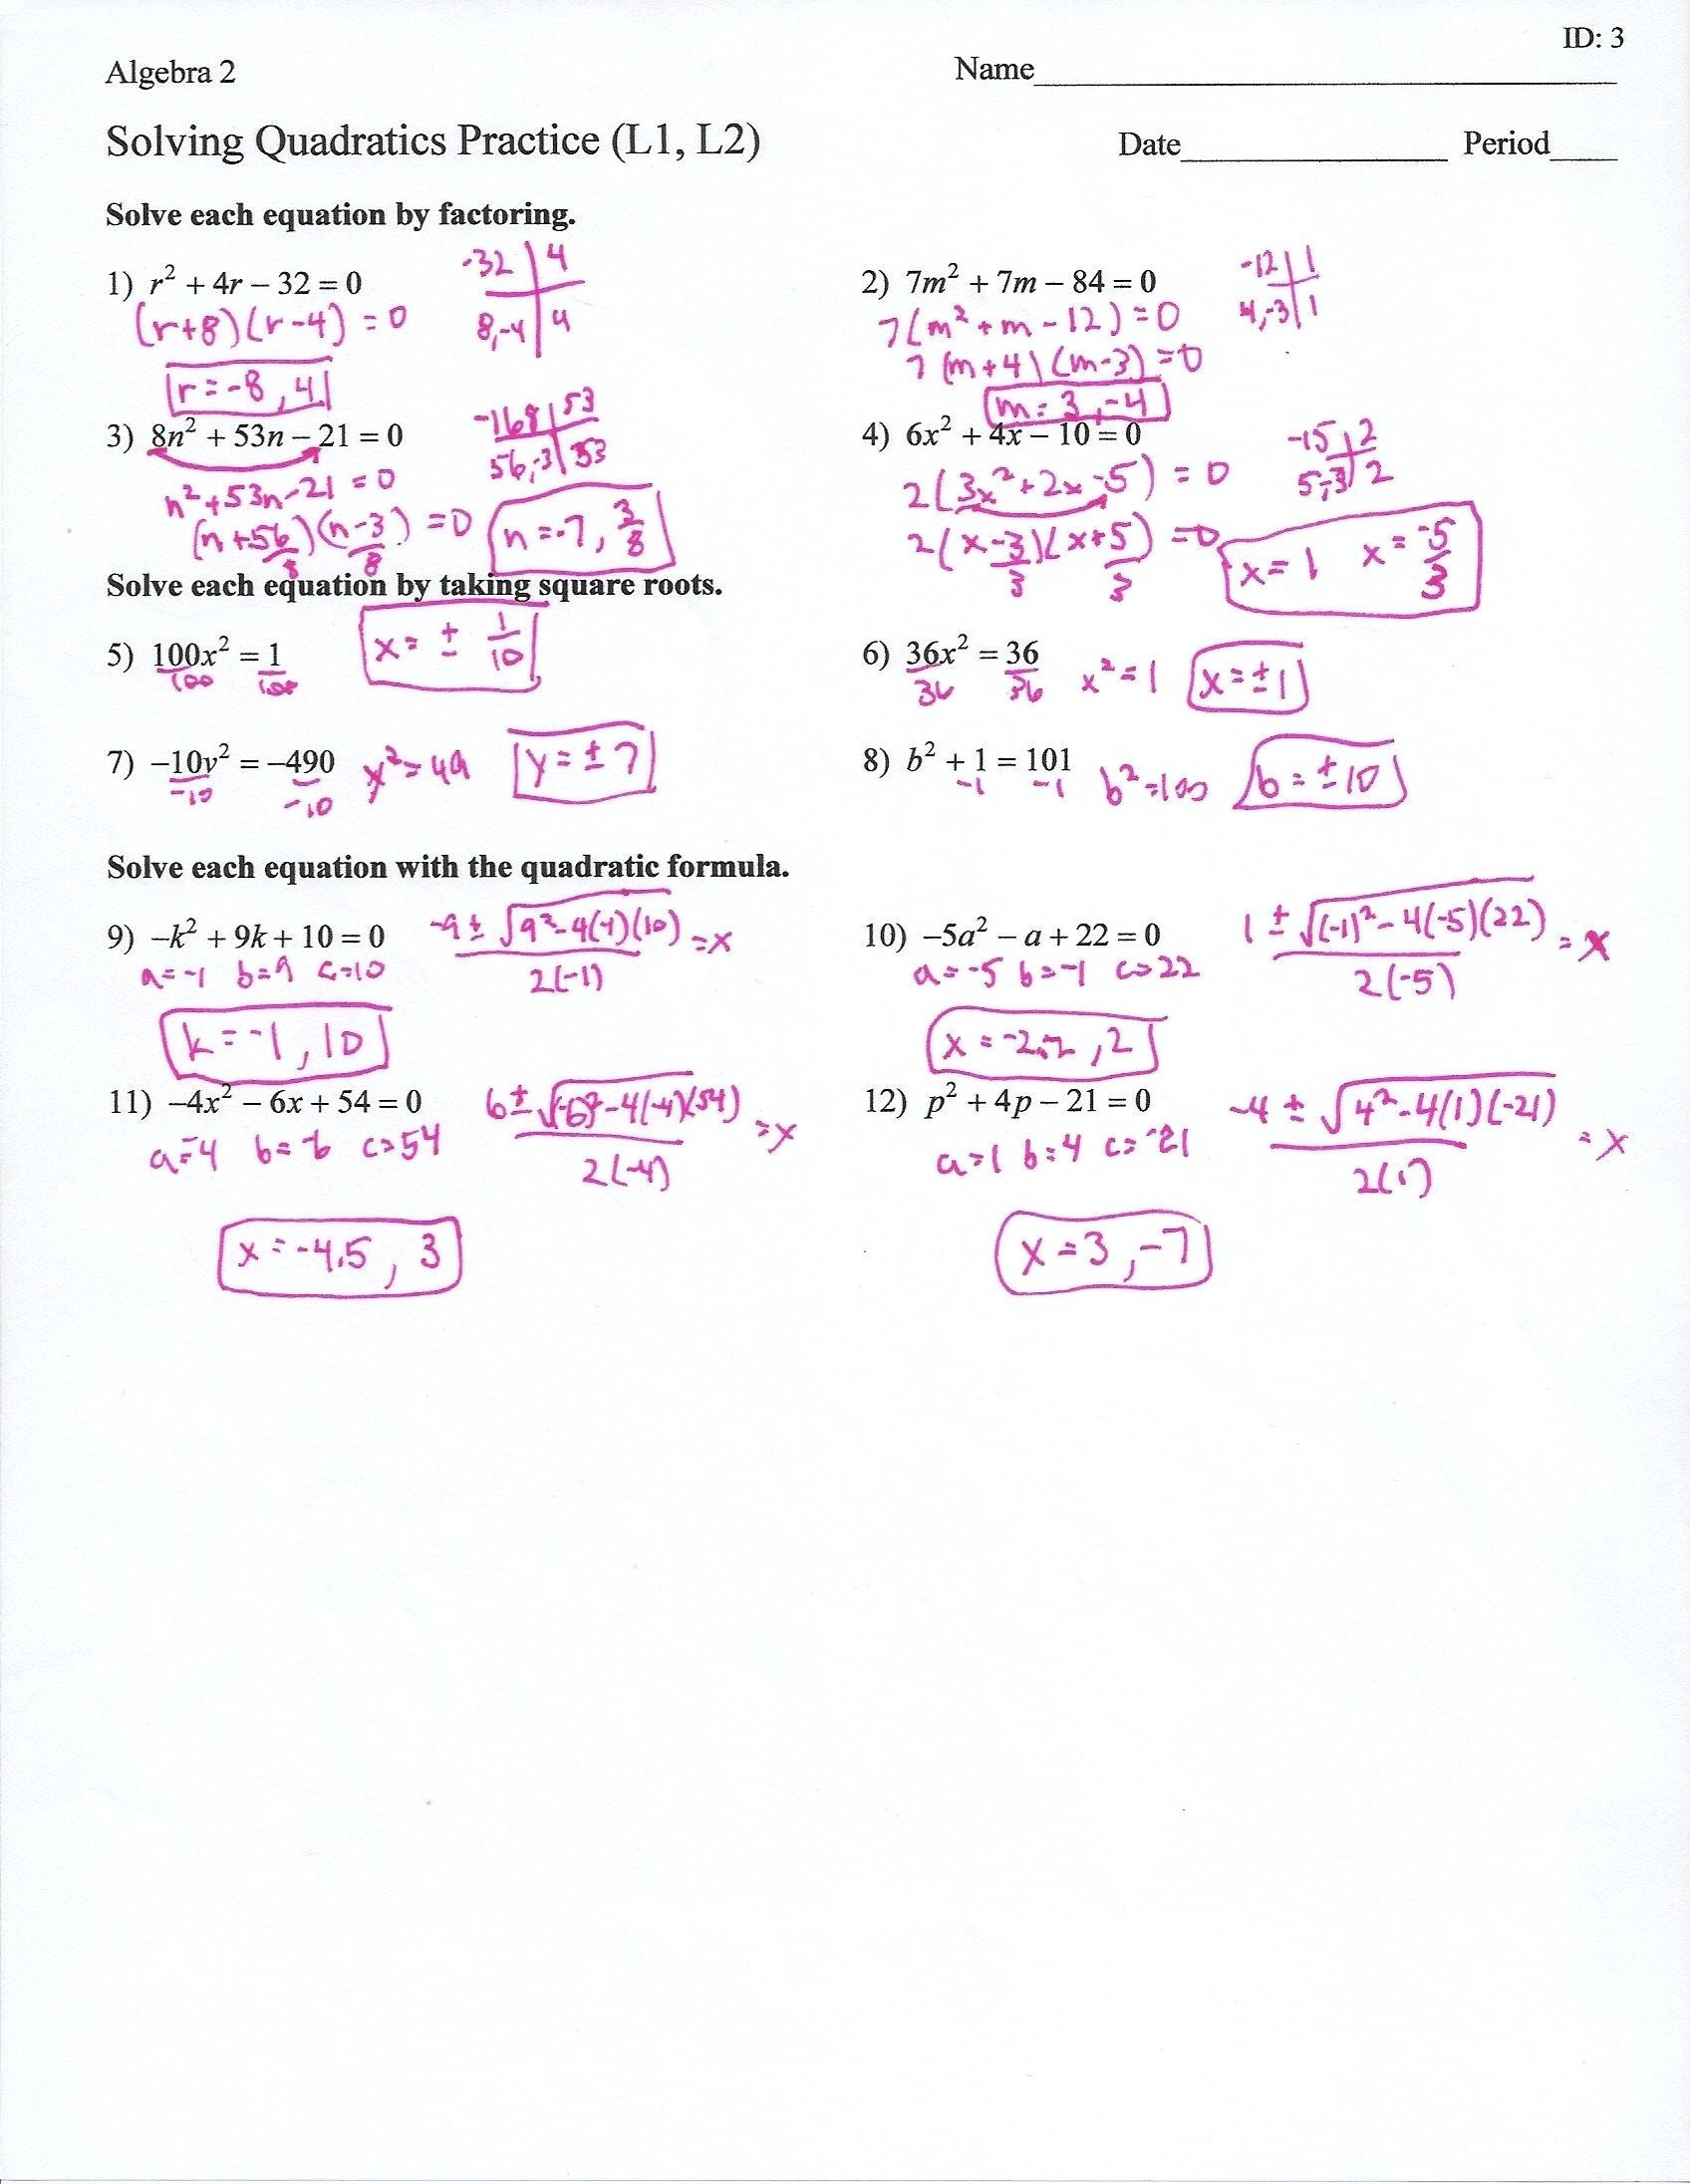 ID: 3
Algebra 2
Name
Solving Quadratics Practice (L1, L2)
Date Period
Solve each equation by factoring.
1) r² + 4r − 32 = 0
-32 | 4
8, -4 | 4
(r+8)(r-4) = 0
r = -8, 4
2) 7m² + 7m − 84 = 0
-12 | 1
4, -3 | 1
7(m² + m - 12) = 0
7(m+4)(m-3) = 0
m = 3, -4
3) 8n² + 53n − 21 = 0
-168 | 53
56, -3 | 53
n² + 53n - 21 = 0
(n + 56/8)(n - 3/8) = 0
n = -7, 3/8
4) 6x² + 4x − 10 = 0
-15 | 2
5, -3 | 2
2(3x² + 2x - 5) = 0
2(x - 3/3)(x + 5/3) = 0
x = 1 x = -5/3
Solve each equation by taking square roots.
5) 100x² = 1
100 100
x = ± 1/10
6) 36x² = 36
36 36
x² = 1
x = ±1
7) −10v² = −490
-10 -10
y² = 49
y = ±7
8) b² + 1 = 101
-1 -1
b² = 100
b = ±10
Solve each equation with the quadratic formula.
9) −k² + 9k + 10 = 0
a = -1 b = 9 c = 10
-9 ± √(9² - 4(-1)(10)) = x
2(-1)
k = -1, 10
10) −5a² − a + 22 = 0
a = -5 b = -1 c = 22
1 ± √((-1)² - 4(-5)(22)) = x
2(-5)
x = -2.2, 2
11) −4x² − 6x + 54 = 0
a = -4 b = -6 c = 54
6 ± √((-6)² - 4(-4)(54)) = x
2(-4)
x = -4.5, 3
12) p² + 4p − 21 = 0
a = 1 b = 4 c = -21
-4 ± √(4² - 4(1)(-21)) = x
2(1)
x = 3, -7